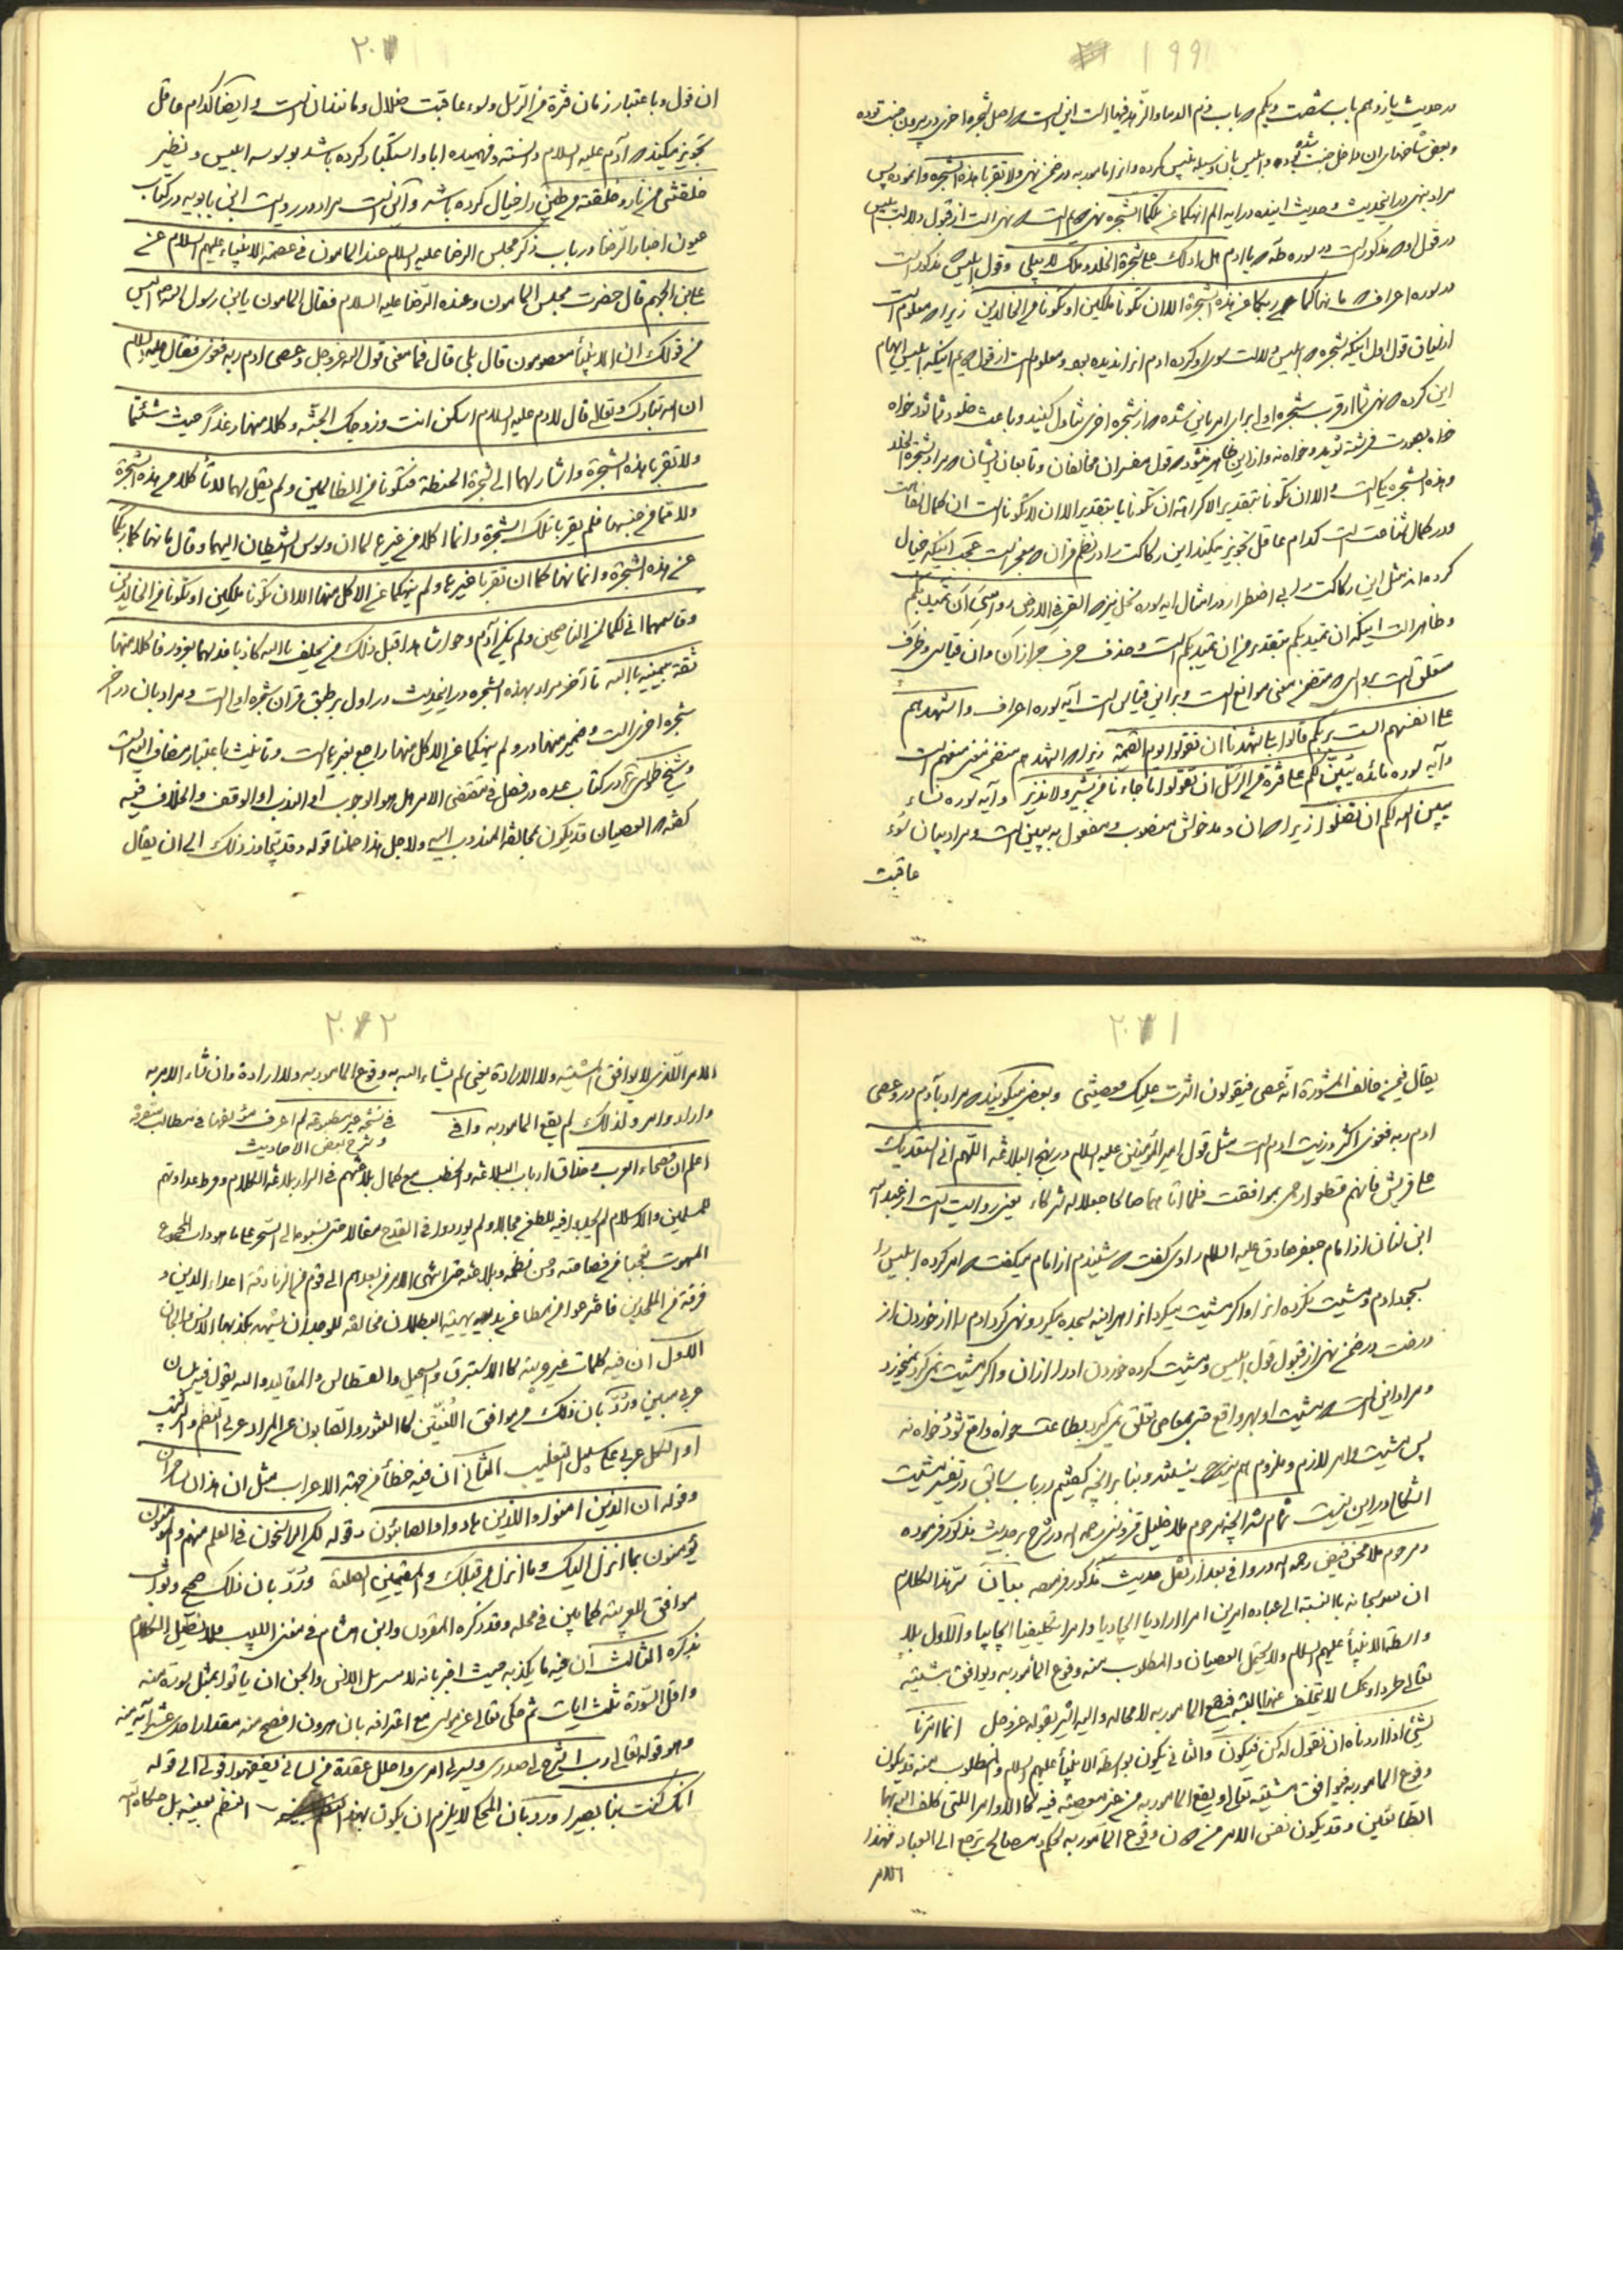 ١٩٩
در حدیث یازدهم باب شصت و یکم که باب ذم الدنیا والزهد فیها است این است که اصل شجره اخری در بیرون جنت بوده
وبعض شاخهای ان داخل جنت شده بوده وابلیس بان وسیله تلبیس کرده وانرا مامور به در ضمن نهی ولا تقربا هذه الشجره وا نموده پس
مراد بنهی در این حدیث وحدیث اینده در ایه الم انهکما عن تلکما الشجره نهی است از قبول دلالت ابلیس
در قول او که مذکور است در سوره طه که یا ادم هل ادلک علی شجرة الخلد وملک لا یبلی وقول ابلیس که مذکور است
در سوره اعراف که ما نهاکما ربکما عن هذه الشجرة الا ان تکونا ملکین او تکونا من الخالدین زیرا که معلوم است
از سیاق قول اول اینکه شجره که ابلیس دلالت بسوی او کرده ادم انرا ندیده بود ومعلوم است از قول دویم اینکه ابلیس ایهام
این کرده که نهی شما از قرب شجره اولی برای این شده که از شجره اخری تناول کنید و باعث خلود شما شود خواه
خواه بصورت فرشته شوید وخواه نه وازاین ظاهر میشود که قول مفسران مخالفان وتابعان ایشان که مراد بشجرة الخلد
وهذه الشجره یکی است والا ان تکونا بتقدیر الا کراهة ان تکونا یا بتقدیر الا ان لا تکونا است ان کمال
ودر کمال شناعت است کدام عاقل تجویز میکند این رکاکت را در نظم قران که معجز است عجب اینکه خیال
کرده اند مثل این رکاکت را بی اضطرار در امثال ایه سوره نحل نیز که القی فی الارض رواسی ان تمید بکم
وظاهر است اینکه ان تمید بکم بتقدیر من ان تمید بکم است وحذف حرف جر از ان وان قیاسی وظرف
متعلق است برواسی که متضمن معنی موانع است وبر این قیاس است آیه سوره اعراف واشهدهم
علی انفسهم الست بربکم قالوا بلی شهدنا ان تقولوا یوم القیمة زیرا که اشهدهم متضمن معنی منعهم است
وآیه سوره مائده یبین لکم علی فترة من الرسل ان تقولوا ما جاءنا من بشیر ولا نذیر وآیه سوره نساء
یبین الله لکم ان تضلوا زیرا که ان و مدخولش منصوب ومفعول به یبین است و مراد بیان سوء
عاقبت
٢٠٠
ان قول وباعتبار زمان فترة من الرسل وسوء عاقبت ضلال ومانند ان است وایضا کدام عاقل
تجویز میکند که آدم علیه السلام دانسته وفهمیده اباء واستکبار کرده باشد بوسوسه ابلیس ونظیر
خلقتنی من نار وخلقته من طین را خیال کرده باشد وآنی است مراد در روایت ابن بابویه در کتاب
عیون اخبار الرضا در باب ذکر مجلس الرضا علیه السلام عند المامون فی عصمة الانبیاء علیهم السلام عن
علی بن الجهم قال حضرت مجلس المامون وعنده الرضا علیه السلام فقال المامون یا بن رسول الله الیس
من قولک ان الانبیاء معصومون قال بلی قال فما معنی قول الله عز وجل وعصی ادم ربه فغوی فقال علیه السلام
ان الله تبارک وتعالی قال لادم علیه السلام اسکن انت وزوجک الجنة وکلا منها رغدا حیث شئتما
ولا تقربا هذه الشجرة واشار لهما الی شجرة الحنطة فتکونا من الظالمین ولم یقل لهما لا تأکلا من هذه الشجرة
ولا مما من جنسها فلم یقربا تلک الشجرة وانما اکلا من غیرها لما ان وسوس الشیطان الیهما وقال ما نهاکما ربکما
عن هذه الشجرة وانما نهاکما ان تقربا غیرها ولم ینهکما عن الاکل منها الا ان تکونا ملکین او تکونا من الخالدین
وقاسمهما انی لکما لمن الناصحین ولم یکن آدم وحوا شاهدا قبل ذلک من یحلف بالله کاذبا فدلیهما بغرور فاکلا منها
ثقة بیمینه بالله تا آخر مراد بهذه الشجره در این حدیث در اول بر طبق قران شجره اولی است ومراد بان در اخر
شجره اخری است وضمیر منها در ولم ینهکما عن الاکل منها راجع بغیرها است وتانیث باعتبار مضاف الیه است
وشیخ طوسی در کتاب عده در فصل فی مقتضی الامر هل هو الوجوب او الندب او الوقف والخلاف فیه
گفته که العصیان قد یکون بمخالفة المندوب الیه ولاجل هذا حملنا قوله وقد یتجاوز ذلک الی ان یقال
٢٠١
یقال فیمن خالف المشورة انه عصی فیقولون اشرت علیک فعصیتنی وبعض میگویند که مراد بآدم در وعصی
ادم ربه فغوی اکثر ذریت ادم است مثل قول امیر المؤمنین علیه السلام در نهج البلاغه اللهم انی استعدیک
علی قریش فانهم قطعوا رحمی بموافقت فلما اتاهما صالحا جعلا له شرکاء یعنی روایت است از عبدالله
ابن سنان از امام جعفر صادق علیه السلام راوی گفت که شنیدم از امام میگفت که امر کرده ابلیس را
بسجود ادم ومشیت نکرده انرا واگر مشیت میکرد انرا هر اینه سجده میکرد ونهی کرد ادم را از خوردن از
درخت در ضمن نهی از قبول قول ابلیس ومشیت کرده خوردن او را از ان واگر مشیت نمی کرد نمیخورد
ومراد این است که مشیت او بهر واقع حتی بمعاصی تعلق میگیرد بطاعت خواه واقع شود خواه نه
پس مشیت وامر لازم وملزوم هم نیستند وبنا بر انچه گفتیم در باب سابق در تفسیر مشیت
اشکال در این نیست تمام شد انچه مرحوم ملا خلیل قزوینی رحمه الله در شرح بر حدیث مذکور فرموده
ومرحوم ملا محسن فیض رحمه الله در وافی بعد از نقل حدیث مذکور فرموده بیان هذا الکلام
ان لله سبحانه بالنسبة الی عباده امرین امرا ارادیا ایجادیا وامرا تکلیفیا ایجابیا والاول بلا
واسطة الانبیاء علیهم السلام ولا یحتمل العصیان والمطلوب منه وقوع المأمور به ویوافق مشیته
تعالی طردا وعکسا لا یتخلف عنها البتة فیقع المامور به لا محالة والیه اشیر بقوله عز وجل انما امرنا
لشیئ اذا اردناه ان نقول له کن فیکون والثانی یکون بواسطة الانبیاء علیهم السلام والمطلوب منه قد یکون
وقوع المامور به فیوافق مشیته تعالی ویقع المامور به من غیر معصیة فیه کالاوامر اللتی کلف الله بها
الطائعین وقد یکون نفس الامر من دون وقوع المأمور به لحکم ومصالح ترجع الی العباد فهذا
الامر
٢٠٢
الامر الذی لا یوافق المشیة ولا الارادة یعنی لم یشاء الله به وقوع المأمور به ولا ارادة وان شاء الامر به
واراد وامر ولذلک لم یقع المأمور به وافی فی نسخة غیر مطبوعة لم اعرف مؤلفها فی مطالب متفرقة
وشرح بعض الاحادیث
اعلم ان فصحاء العرب وحذاق ارباب البلاغة والخطب مع کمال بلاغتهم فی اسرار بلاغة الکلام وفرط عداوتهم
للمسلمین والاسلام لم یجدوا فیه للطعن مجالا ولم یوردوا فی القدح مقالا حتی نسبوه الی السحر علی ما هو دأب المحجوج
المبهوت تعجبا من فصاحته وحسن نظمه وبلاغته حتی انتهی الامر من بعدهم الی قوم من الزنادقة اعداء الدین و
فرقة من الملحدین فاخترعوا من مطاعن بدیهیة البطلان مخالفة للوجدان یشهد بکذبها الانس والجان
الاول ان فیه کلمات غیر عربیة کالاستبرق والسجیل والقسطاس والمقالید والله یقول فیه بلسان
عربی مبین ورُدّ بان ذلک من موافق اللغتین کالتنور والصابون علی المراد عربی النظم والترکیب
او الکل عربی علی سبیل التغلیب الثانی ان فیه خطأ من جهة الاعراب مثل ان هذان لساحران
وقوله ان الذین امنوا والذین هادوا والصابئون وقوله لکن الراسخون فی العلم منهم والمؤمنون
یؤمنون بما انزل الیک وما انزل من قبلک والمقیمین الصلوة ورُدّ بان ذلک صحیح وبوادی
موافق للعربیة کما بین فی محله وقد ذکره المفردون وابن هشام فی مغنی اللبیب فلا نطیل الکلام
بذکره الثالث ان فیه ما یکذبه حیث اخبر بانه لا یتیسر للانس والجن ان یاتوا بمثل سورة منه
واقل السورة ثلث ایات ثم حکی تعالی عن موسی مع اعترافه بان هرون افصح منه مقدار احدی عشر آیة منه
وهو قوله تعالی رب اشرح لی صدری ویسر لی امری واحلل عقدة من لسانی یفقهوا قولی الی قوله
انک کنت بنا بصیرا ورد بان المحکی لا یلزم ان یکون بهذا النظم بعینه بل حکاه الله